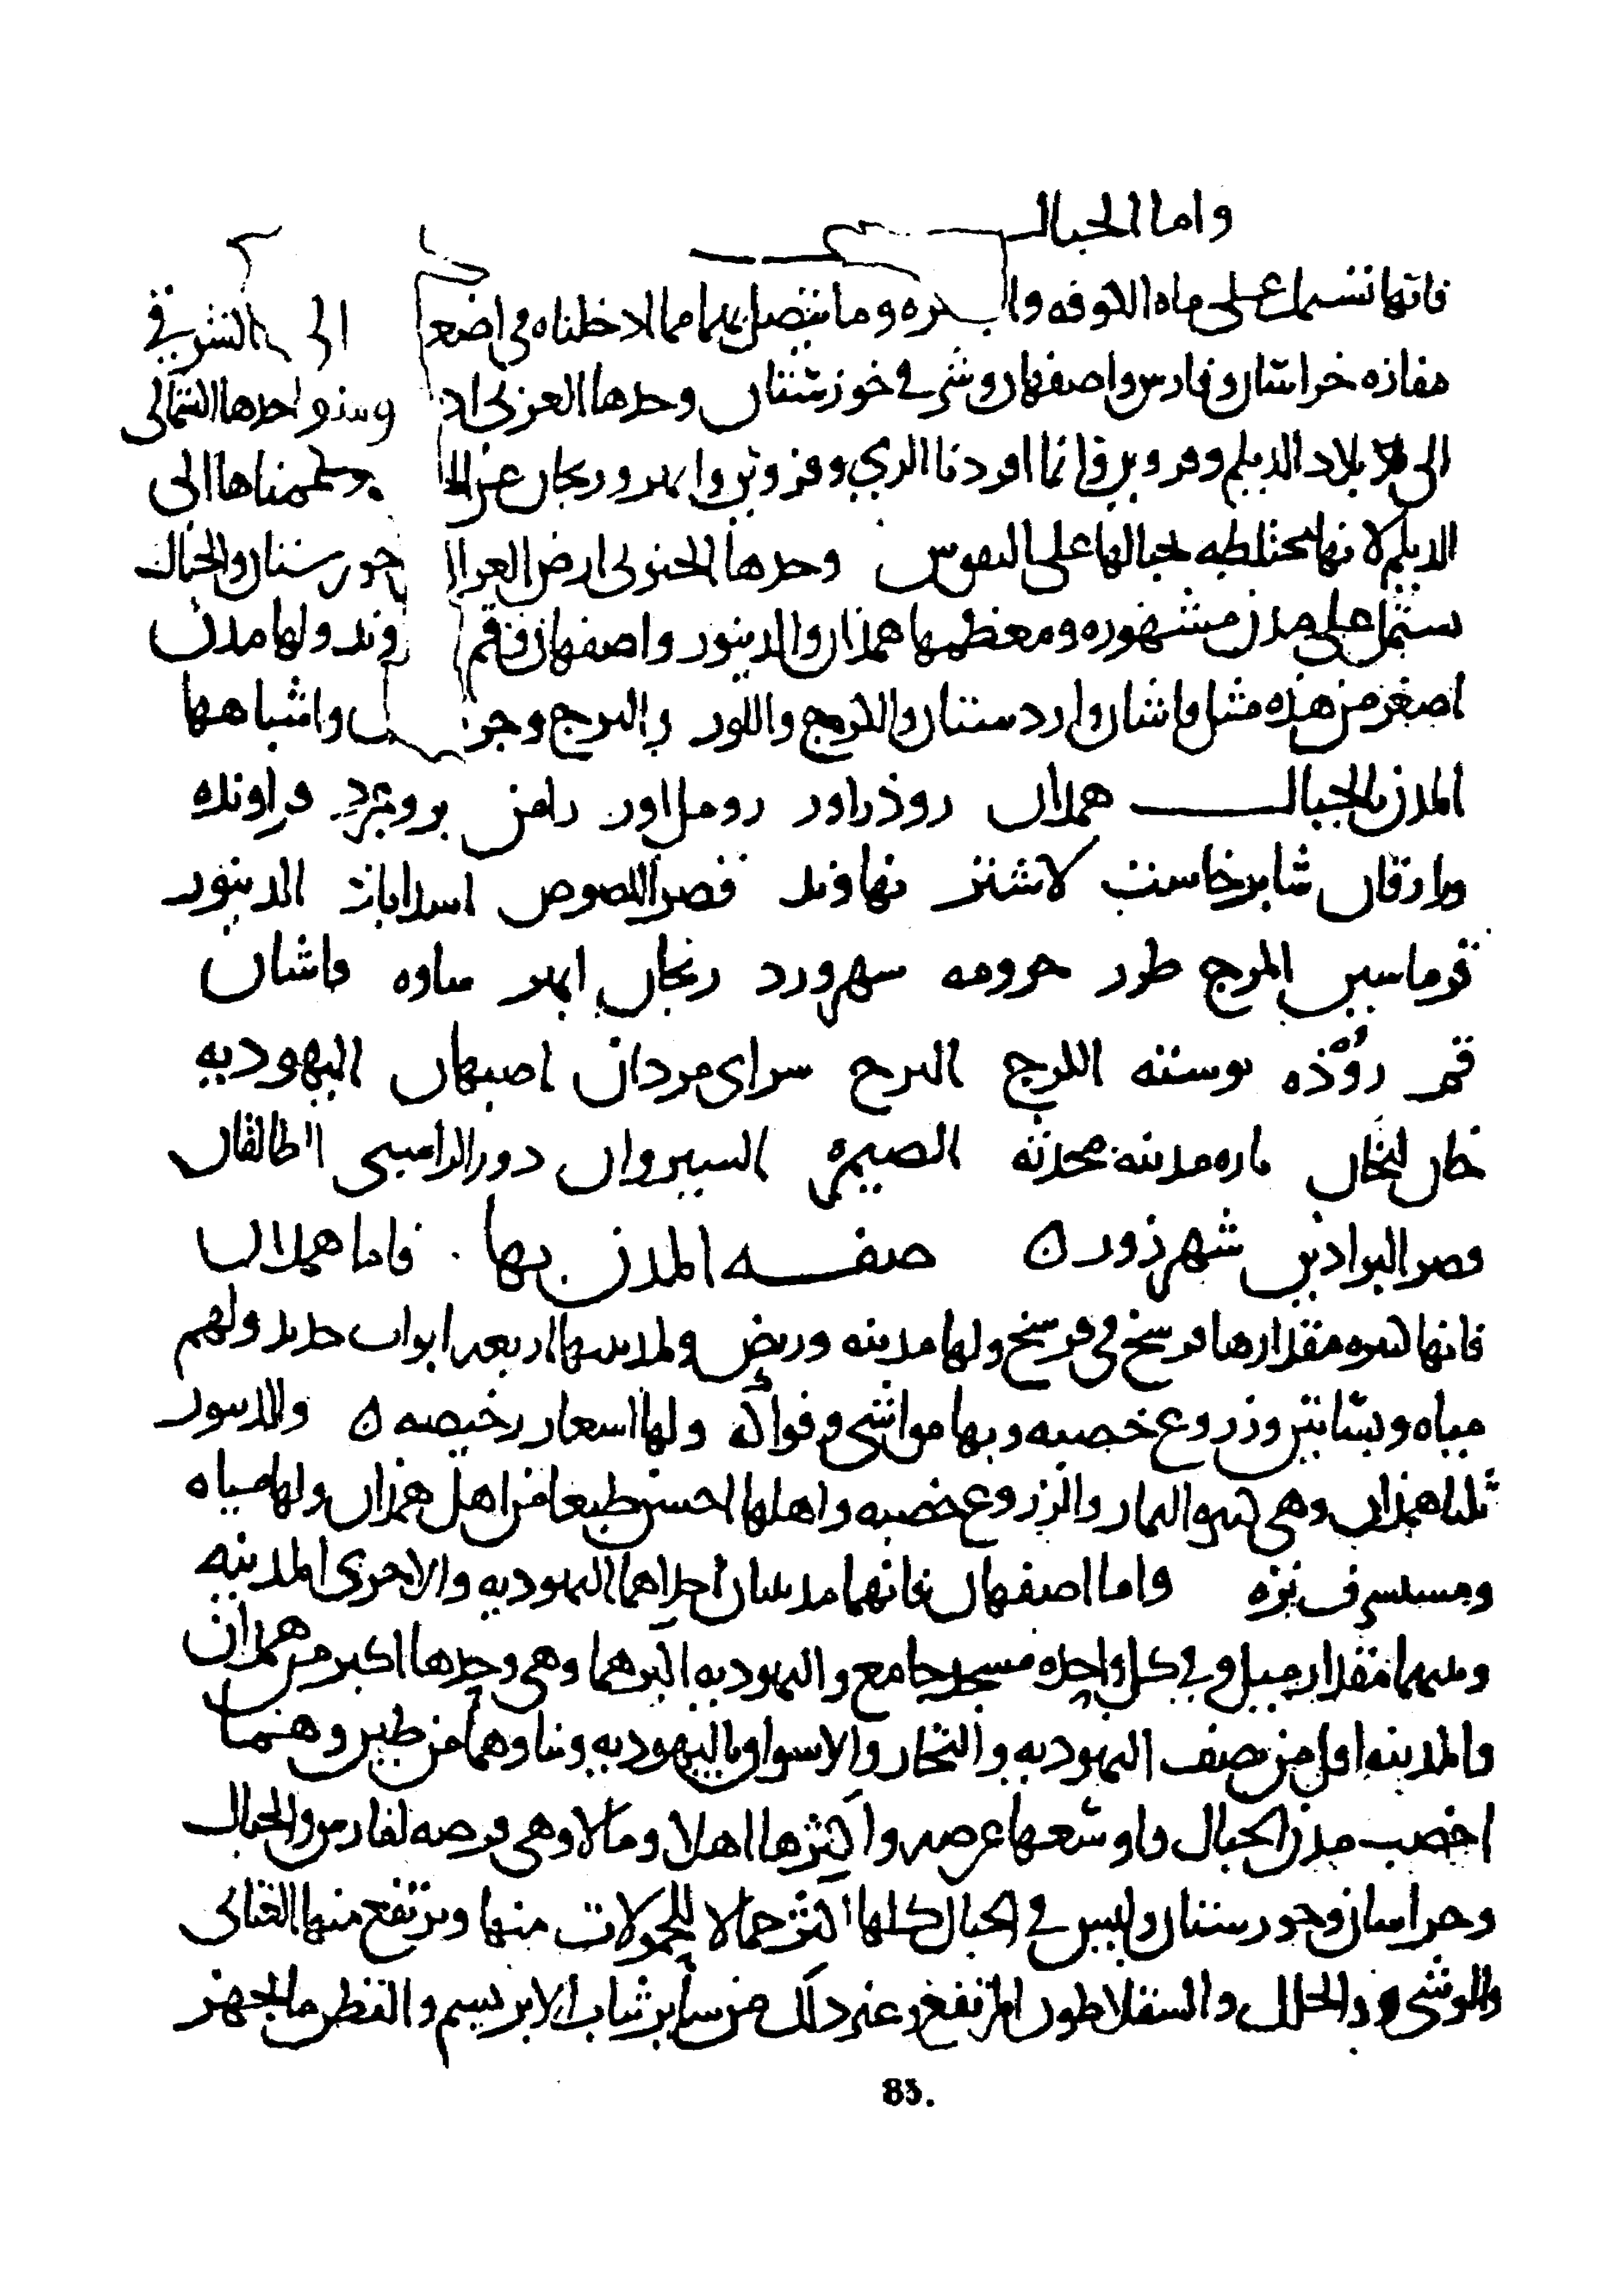 واما الجبال
فانها تشتمل على ماه الكوفه والبصره وما يتصل بهما مما ادخلناه في اضعا الى الشرقي
مفازه خراسان وفارس واصفهان وشرقي خوزستان وحدها الغربي اذ وحدها الشمالي
الى بلاد الديلم وقزوين وانما افردنا الري وقزوين وابهر وزنجان عن الجبا وضممناها الى
الديلم لانها محتلطه بجبالها على التقويس وحدها الجنوبي ارض العراق خورستان والجبال
يشتمل على مدن مشهوره ومعظمها همذان والدينور واصفهان وقم ولها مدن
اصغر من هذه مثل قاشان واردستان والكرج واللور والبرج واشباهها
المدن بالجبال همدان روذراور رامن بروجرد فراونده
شابرخاست لاشتر نهاوند قصر اللصوص اسداباذ الدينور
قرماسين المرج طزر حرومه سهرورد زنجان ابهر ساوه قاشان
قم روذه بوسته الكرج البرج سراى مردان اصبهان اليهوديه
خان لنجان باره مدينه محدثه الصيمره السيروان دور الراسبي الطالقان
قصر البراذين شهرزور ن صفه المدن بها فاما همدان
فانها كبيره مقدارها فرسخ في فرسخ ولها مدينه وربض ولمدينتها اربعه ابواب حديد ولهم
مياه وبساتين وزروع خصبه وبها مواشي وفواكه ولها اسعار رخيصه ن والدينور
ثلثا همذان وهي كثيره الثمار والزروع خصبه واهلها احسن طبعا من اهل همذان ولها مياه
ومستشرف نزه واما اصفهان فانهما مدينتان احداهما اليهوديه والاخرى المدينه
وبينهما مقدار ميل وفي كل واحده مسجد جامع واليهوديه اكبرهما وهي وحدها اكبر من همدان
والمدينه اقل من نصف اليهوديه والتجار والاسواق باليهوديه وبناوهما من طين وهما
اخصب مدن الجبال واوسعها عرصه واكثرها اهلا ومالا وهي فرضه لفارس والجبال
وخراسان وخورستان وليس في الجبال كلها اكثر جمالا للحمولات منها ويرتفع منها العتابي
والوشي والحلل والسقلاطون المرتفع وغير ذلك من ساير ثياب الابريسم والقطن ما يجهز
83.